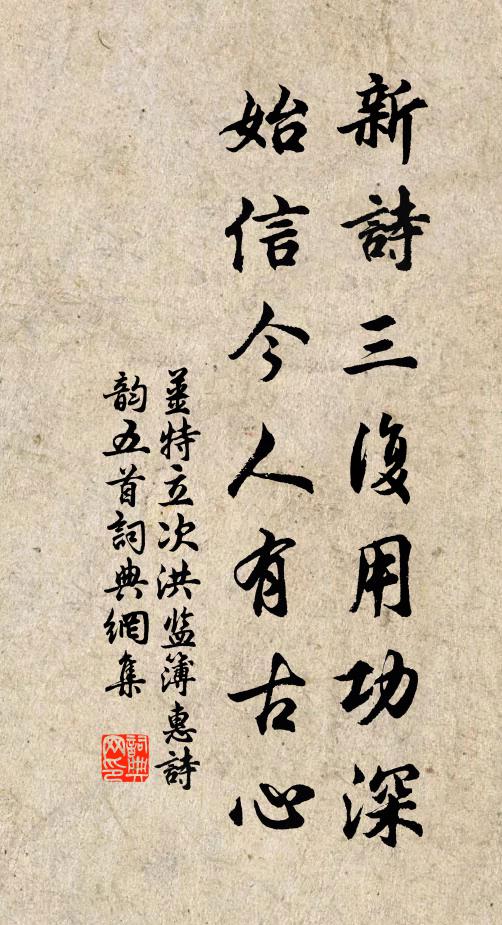 新詩三復用功深
始信今人有古心
姜特立次洪监簿惠詩
韵五首詞典網集
詞典
网印